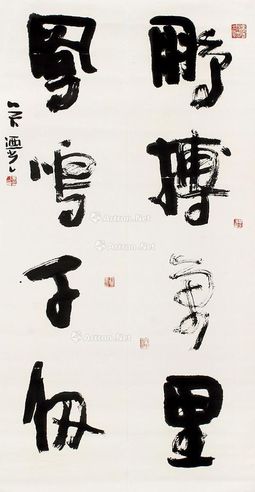 鵬搏萬里
鳳鳴千仞
Artron.Net
Artron.Net
Artron.Net